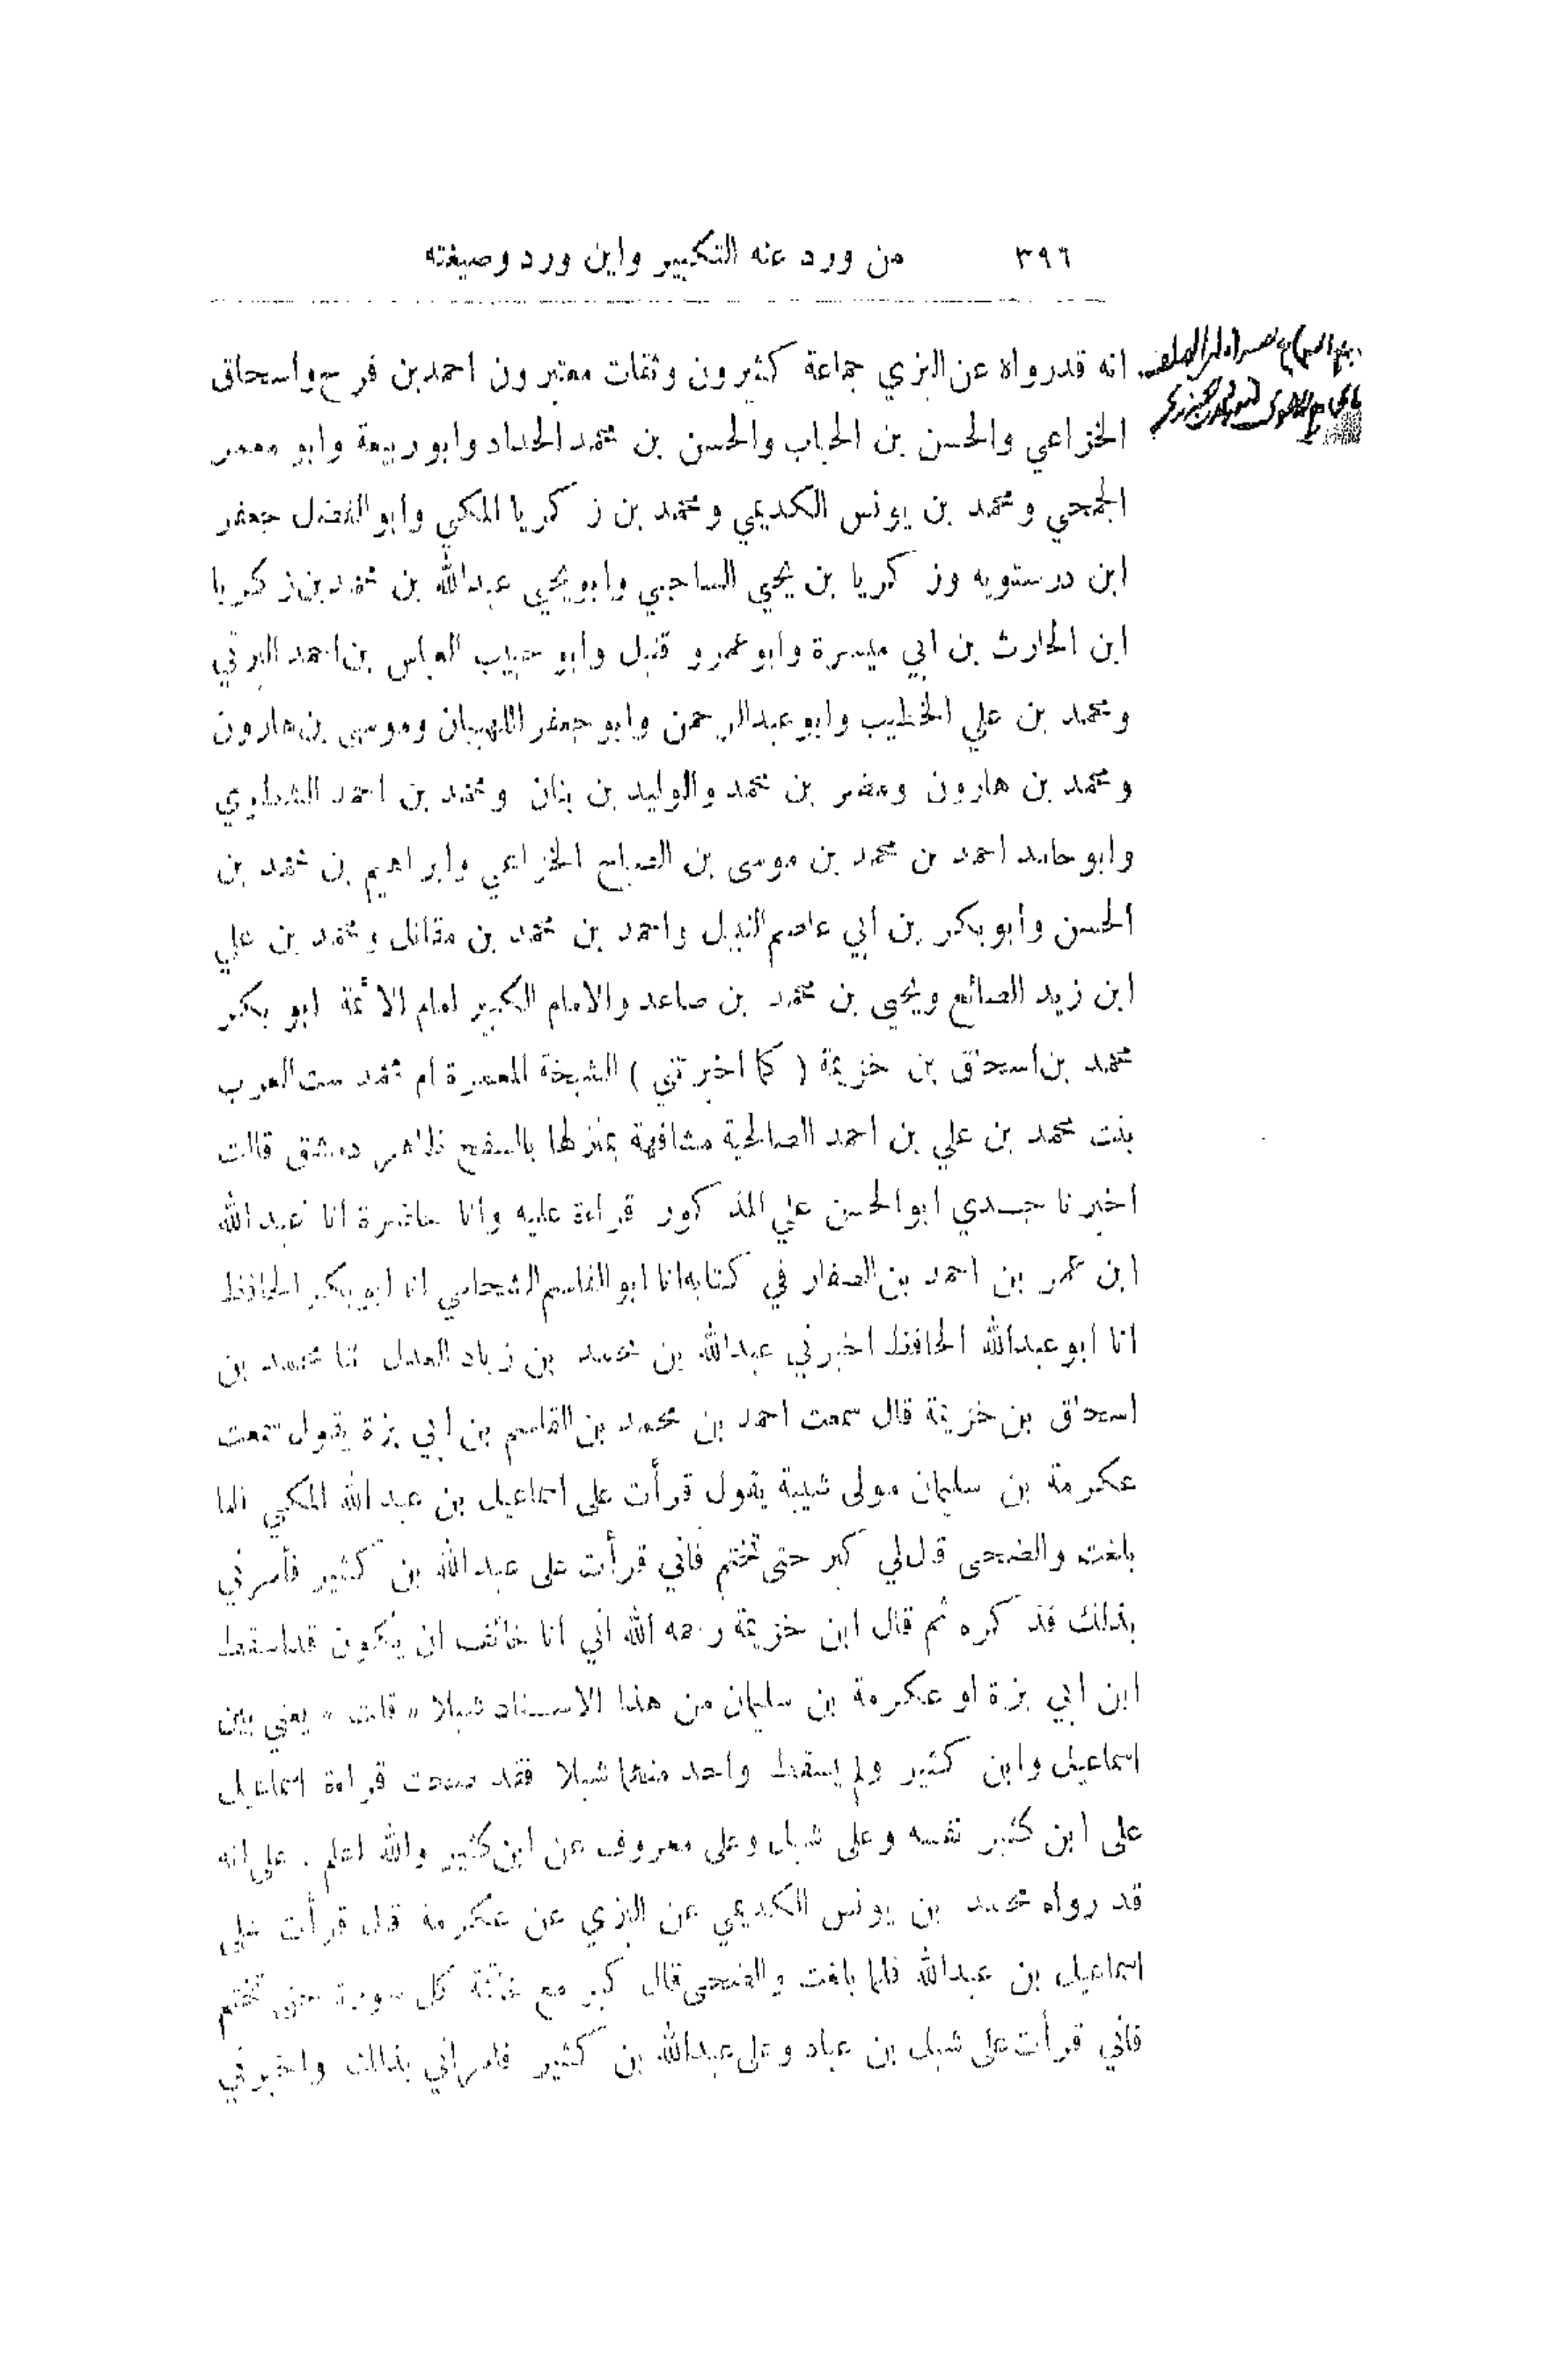 ٣٩٦ من ورد عنه التكبير واين ورد وصيغته
انه قدرواه عن البزي جماعة كثيرون وثقات معتبرون احمد بن فرح واسحاق
الخزاعي والحسن بن الحباب والحسن بن محمد الحداد وابو ربيعة وابو معمر
الجمحي ومحمد بن يونس الكديمي ومحمد بن زكريا المكي وابو الفضل جعفر
ابن درستويه وزكريا بن يحيي الساجي وابو يحيى عبدالله بن محمد بن زكريا
ابن الحارث بن ابي ميسرة وابو عمرو قنبل وابو حبيب العباس بن احمد البرتي
ومحمد بن علي الخطيب وابو عبدالرحمن وابو جعفر اللهبيان وموسى بن هارون
ومحمد بن هارون ومضر بن محمد والوليد بن بنان ومحمد بن احمد الشطوي
وابو حامد احمد بن محمد بن موسى بن الصباح الخزاعي وابراهيم بن محمد بن
الحسن وابو بكر بن أبي عاصم النبيل واحمد بن محمد بن مقاتل ومحمد بن علي
ابن زيد الصائغ ويحيى بن محمد بن صاعد والامام الكبير امام الائمة ابو بكر
محمد بن اسحاق بن خزيمة ( كما اخبرتني ) الشيخة المعمرة ام محمد ست العرب
بنت محمد بن علي بن احمد الصالحية مشافهة بمنزلها بالسفح ظاهر دمشق قالت
اخبرنا جدي ابو الحسن علي المذكور قراءة عليه وأنا حاضرة أنا عبد الله
ابن عمر بن احمد بن الصفار في كتابه انا ابو القاسم الشحامي انا ابو بكر الحافظ
انا ابو عبدالله الحافظ اخبرني عبدالله بن محمد بن زياد العدل ثنا محمد بن
اسحاق بن خزيمة قال سمعت احمد بن محمد بن القاسم بن أبي بزة يقول سمعت
عكرمة بن سليمان مولى شيبة يقول قرأت على اسماعيل بن عبد الله المكي فلما
بلغت والضحى قال لي كبر حتى تختم فاني قرأت على عبد الله بن كثير فأمرني
بذلك فذكره ثم قال ابن خزيمة رحمه الله اني أنا خائف ان يكون قد اسقط
ابن ابي بزة او عكرمة بن سليمان من هذا الاسناد شبلا « قلت » يعني بين
اسماعيل وابن كثير ولم يسقط واحد منهما شبلا فقد صحت قراءة اسماعيل
على ابن كثير نفسه وعلى شبل وعلى معروف عن ابن كثير والله اعلم . على انه
قد رواه محمد بن يونس الكديمي عن البزي عن عكرمة قال قرأت على
اسماعيل بن عبدالله فلما بلغت والضحى قال كبر مع خاتمة كل سورة حتى تختم
فأني قرأت على شبل بن عباد وعلى عبدالله بن كثير فامراني بذلك واخبرني